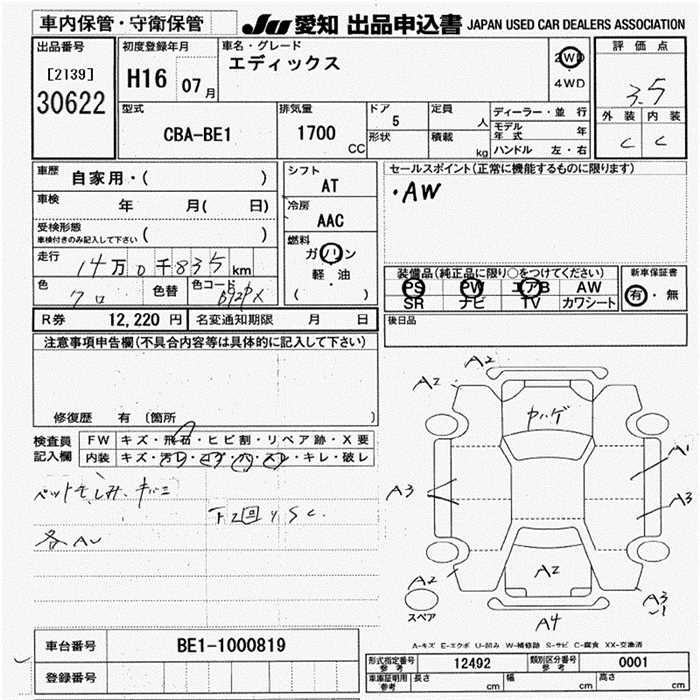 車内保管・守衛保管
JU 愛知 出品申込書 JAPAN USED CAR DEALERS ASSOCIATION
出品番号 初度登録年月 車名・グレード 評価点
[2139] エディックス 2WD
30622 H16 07月 4WD 3.5
型式 排気量 ドア 定員 ディーラー・並行 外装 内装
CBA-BE1 1700 CC 5 人 モデル年式 年 C C
形状 積載 kg ハンドル 左・右
車歴 自家用・( ) シフト AT セールスポイント(正常に機能するものに限ります)
車検 年 月( 日) 冷房 AAC ・AW
受検形態 ( ) 燃料
車検付きのみ記入して下さい ガソリン
走行 14万0千835km 軽・油 装備品(純正品に限り○をつけてください) 新車保証書
色 クロ 色替 色コード B92PX ( ) PS PW エアB AW 有・無
SR ナビ TV カワシート
R券 12,220 円 名変通知期限 月 日 後日品
注意事項申告欄(不具合内容等は具体的に記入して下さい)
A2
A2
修復歴 有 (箇所 )
検査員 FW キズ・飛石・ヒビ割・リペア跡・X要
記入欄 内装 キズ・汚レ・コゲ・穴・スレ・キレ・破レ
A1
A3 A3
下2回
各AU
A2 A2 A3
スペア A4
A-キズ E-エクボ U-凹み W-補修跡 S-サビ C-腐食 XX-交換済
車台番号 BE1-1000819
形式指定番号 参考 12492 類別区分番号 参考 0001
登録番号 車庫証明用 参考 長さ cm 幅 cm 高さ cm